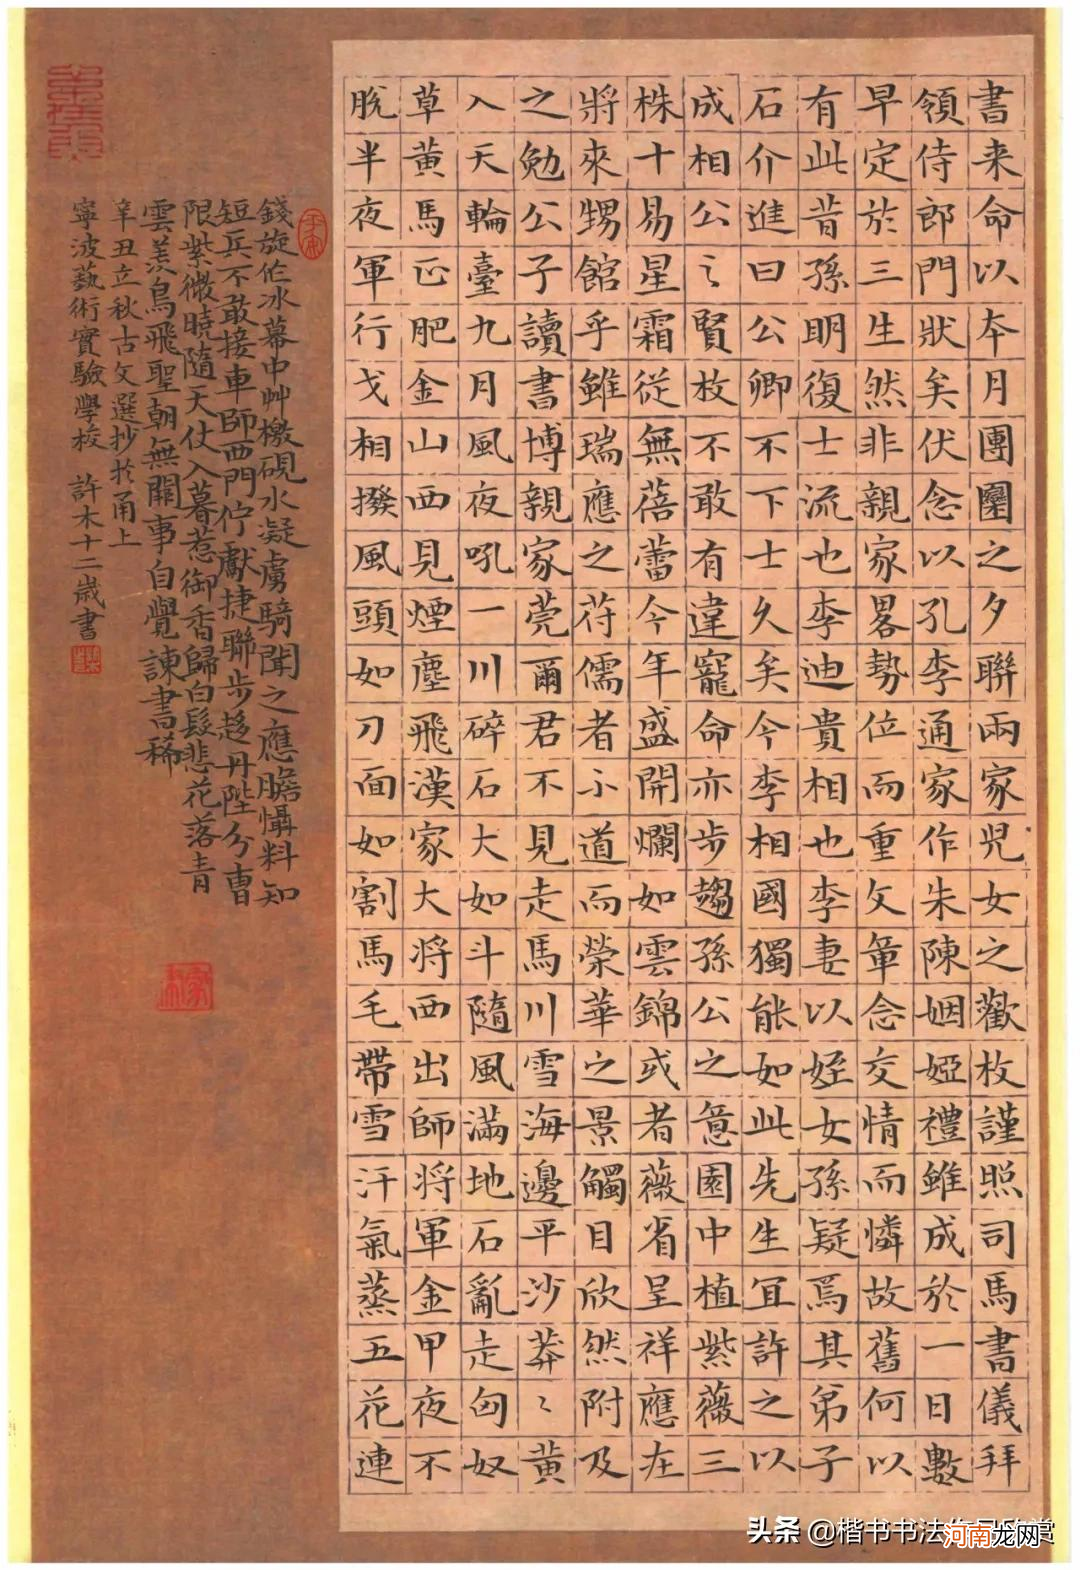 書来命以本月團圞之夕聯兩家児女之歡枚謹照司馬書儀拜
領侍郎門狀矣伏念以孔李通家作朱陳姻婭禮雖成於一日數
早定於三生然非親家畧勢位而重文章念交情而憐故舊何以
有此昔孫明復士流也李迪貴相也李妻以姪女孫疑焉其弟子
石介進曰公卿不下士久矣今李相國獨能如此先生宜許之以
成相公之賢枚不敢有違寵命亦步趨孫公之意園中植紫薇三
株十易星霜従無蓓蕾今年盛開爛如雲錦或者薇省呈祥應在
將來甥館乎雖瑞應之苻儒者不道而榮華之景觸目欣然附及
之勉公子讀書博親家莞爾君不見走馬川雪海邊平沙莽〻黄
入天輪臺九月風夜吼一川碎石大如斗隨風滿地石亂走匈奴
草黄馬正肥金山西見煙塵飛漢家大将西出師将軍金甲夜不
脫半夜軍行戈相撥風頭如刀面如割馬毛帶雪汗氣蒸五花連
錢旋作冰幕中艸檄硯水凝虜騎聞之應膽懾料知
短兵不敢接車師西門佇獻捷聯步趍丹陛分曹
限紫微曉隨天仗入暮惹御香歸白髮悲花落青
雲羨鳥飛聖朝無闕事自覺諫書稀
辛丑立秋古文選抄於甬上
寧波藝術實驗學校 許木十二歲書
头条 @楷书书法作品欣赏
河南龙网